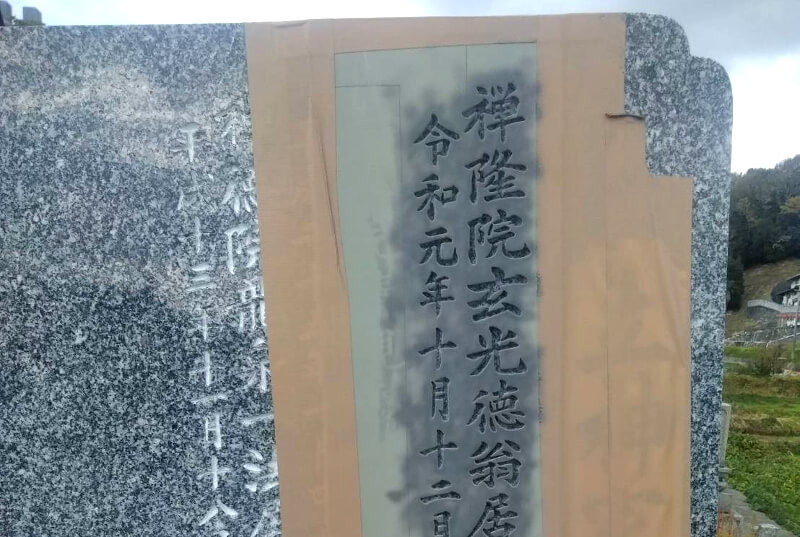 禅隆院玄光徳翁居
令和元年十月十二日
徳院龍
平成十三年十一月十八